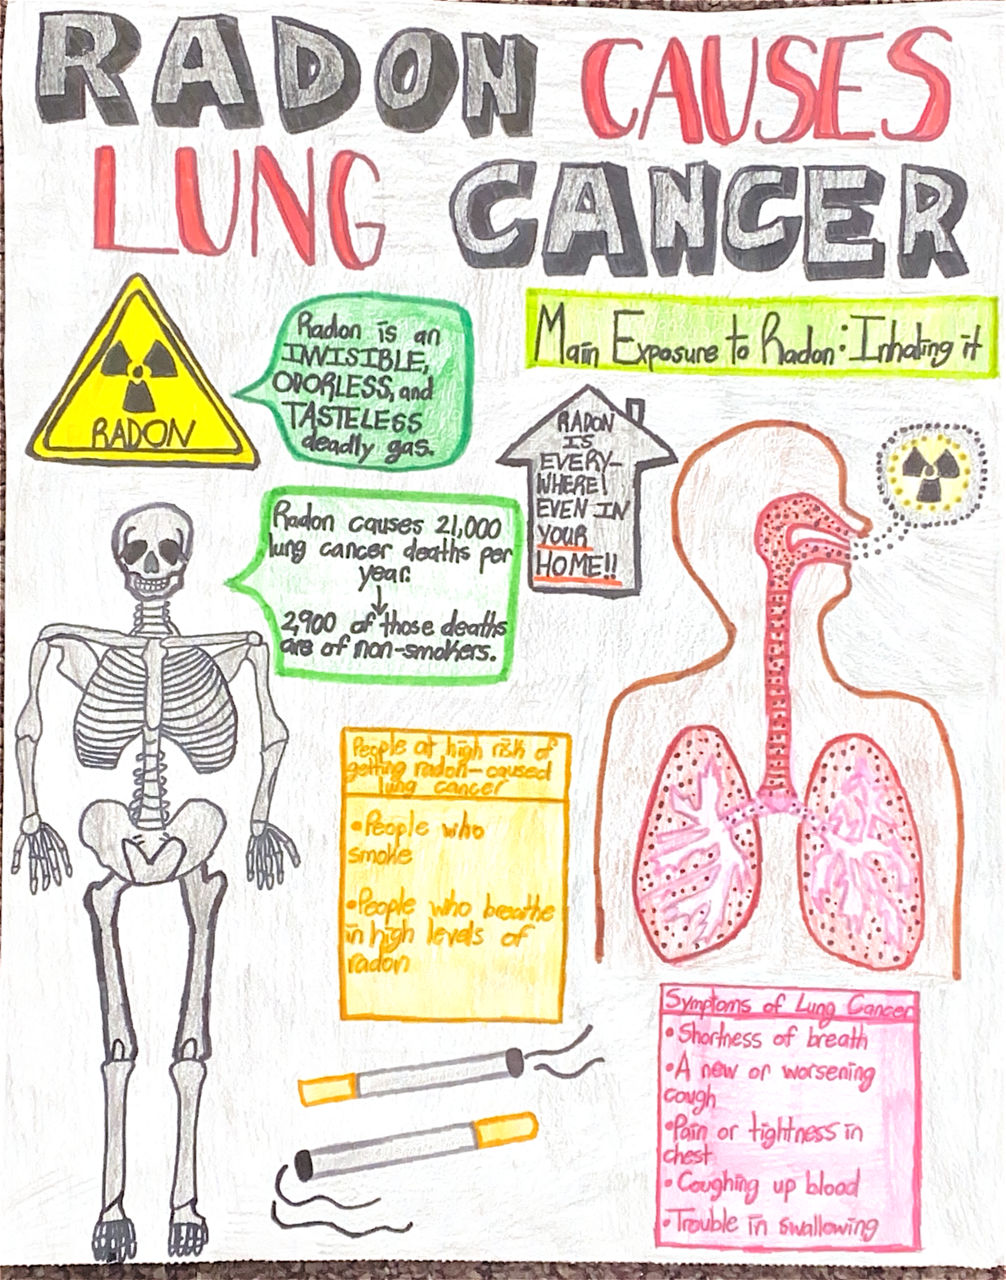 RADON CAUSES
LUNG CANCER
RADON
Radon is an
INVISIBLE,
ODORLESS, and
TASTELESS
deadly gas.
Main Exposure to Radon: Inhaling it
RADON
IS
EVERY-
WHERE!
EVEN IN
YOUR
HOME!!
Radon causes 21,000
lung cancer deaths per
year.
2,900 of those deaths
are of non-smokers.
People at high risk of
getting radon-caused
lung cancer
•People who
smoke
•People who breathe
in high levels of
radon
Symptoms of Lung Cancer
•Shortness of breath
•A new or worsening
cough
•Pain or tightness in
chest
•Coughing up blood
•Trouble in swallowing